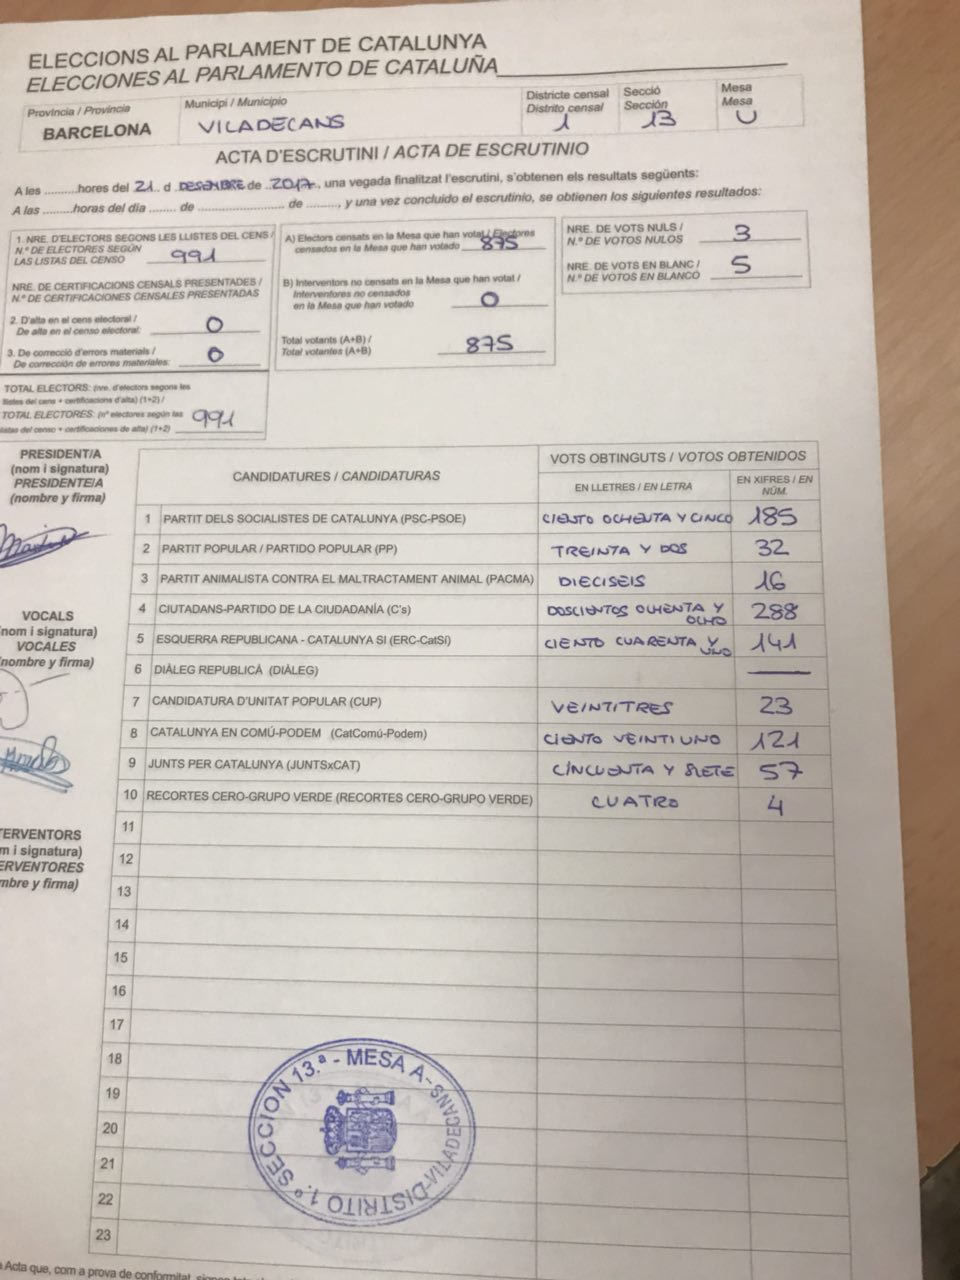 ELECCIONS AL PARLAMENT DE CATALUNYA
ELECCIONES AL PARLAMENTO DE CATALUÑA
Província / Provincia
BARCELONA
Municipi / Municipio
VILADECANS
Districte censal
Distrito censal
1
Secció
Sección
13
Mesa
Mesa
U
ACTA D'ESCRUTINI / ACTA DE ESCRUTINIO
A les ..........hores del 21.. d DESEMBRE de ..2017.., una vegada finalitzat l'escrutini, s'obtenen els resultats següents:
A las ..........horas del día ........ de .......................... de ........., y una vez concluido el escrutinio, se obtienen los siguientes resultados:
1. NRE. D'ELECTORS SEGONS LES LLISTES DEL CENS /
N.º DE ELECTORES SEGÚN
LAS LISTAS DEL CENSO 991
NRE. DE CERTIFICACIONS CENSALS PRESENTADES /
N.º DE CERTIFICACIONES CENSALES PRESENTADAS
2. D'alta en el cens electoral /
De alta en el censo electoral: 0
3. De correcció d'errors materials /
De corrección de errores materiales: 0
TOTAL ELECTORS: (nre. d'electors segons les
llistes del cens + certificacions d'alta) (1+2) /
TOTAL ELECTORES: (nº electores según las
listas del censo + certificaciones de alta) (1+2) 991
A) Electors censats en la Mesa que han votat / Electores
censados en la Mesa que han votado 875
B) Interventors no censats en la Mesa que han votat /
Interventores no censados
en la Mesa que han votado 0
Total votants (A+B) /
Total votantes (A+B) 875
NRE. DE VOTS NULS /
N.º DE VOTOS NULOS 3
NRE. DE VOTS EN BLANC /
N.º DE VOTOS EN BLANCO 5
PRESIDENT/A
(nom i signatura)
PRESIDENTE/A
(nombre y firma)
VOCALS
nom i signatura)
VOCALES
nombre y firma)
TERVENTORS
m i signatura)
ERVENTORES
mbre y firma)
CANDIDATURES / CANDIDATURAS
VOTS OBTINGUTS / VOTOS OBTENIDOS
EN LLETRES / EN LETRA
EN XIFRES / EN
NÚM.
1 PARTIT DELS SOCIALISTES DE CATALUNYA (PSC-PSOE) CIENTO OCHENTA Y CINCO 185
2 PARTIT POPULAR / PARTIDO POPULAR (PP) TREINTA Y DOS 32
3 PARTIT ANIMALISTA CONTRA EL MALTRACTAMENT ANIMAL (PACMA) DIECISEIS 16
4 CIUTADANS-PARTIDO DE LA CIUDADANÍA (C's) DOSCIENTOS OCHENTA Y OCHO 288
5 ESQUERRA REPUBLICANA - CATALUNYA SI (ERC-CatSí) CIENTO CUARENTA Y UNO 141
6 DIÀLEG REPUBLICÀ (DIÀLEG) —
7 CANDIDATURA D'UNITAT POPULAR (CUP) VEINTITRES 23
8 CATALUNYA EN COMÚ-PODEM (CatComú-Podem) CIENTO VEINTIUNO 121
9 JUNTS PER CATALUNYA (JUNTSxCAT) CINCUENTA Y SIETE 57
10 RECORTES CERO-GRUPO VERDE (RECORTES CERO-GRUPO VERDE) CUATRO 4
11
12
13
14
15
16
17
18
19
20
21
22
23
DISTRITO 1.º SECCION 13.ª - MESA A - VILADECANS
Acta que, com a prova de conformitat, signen